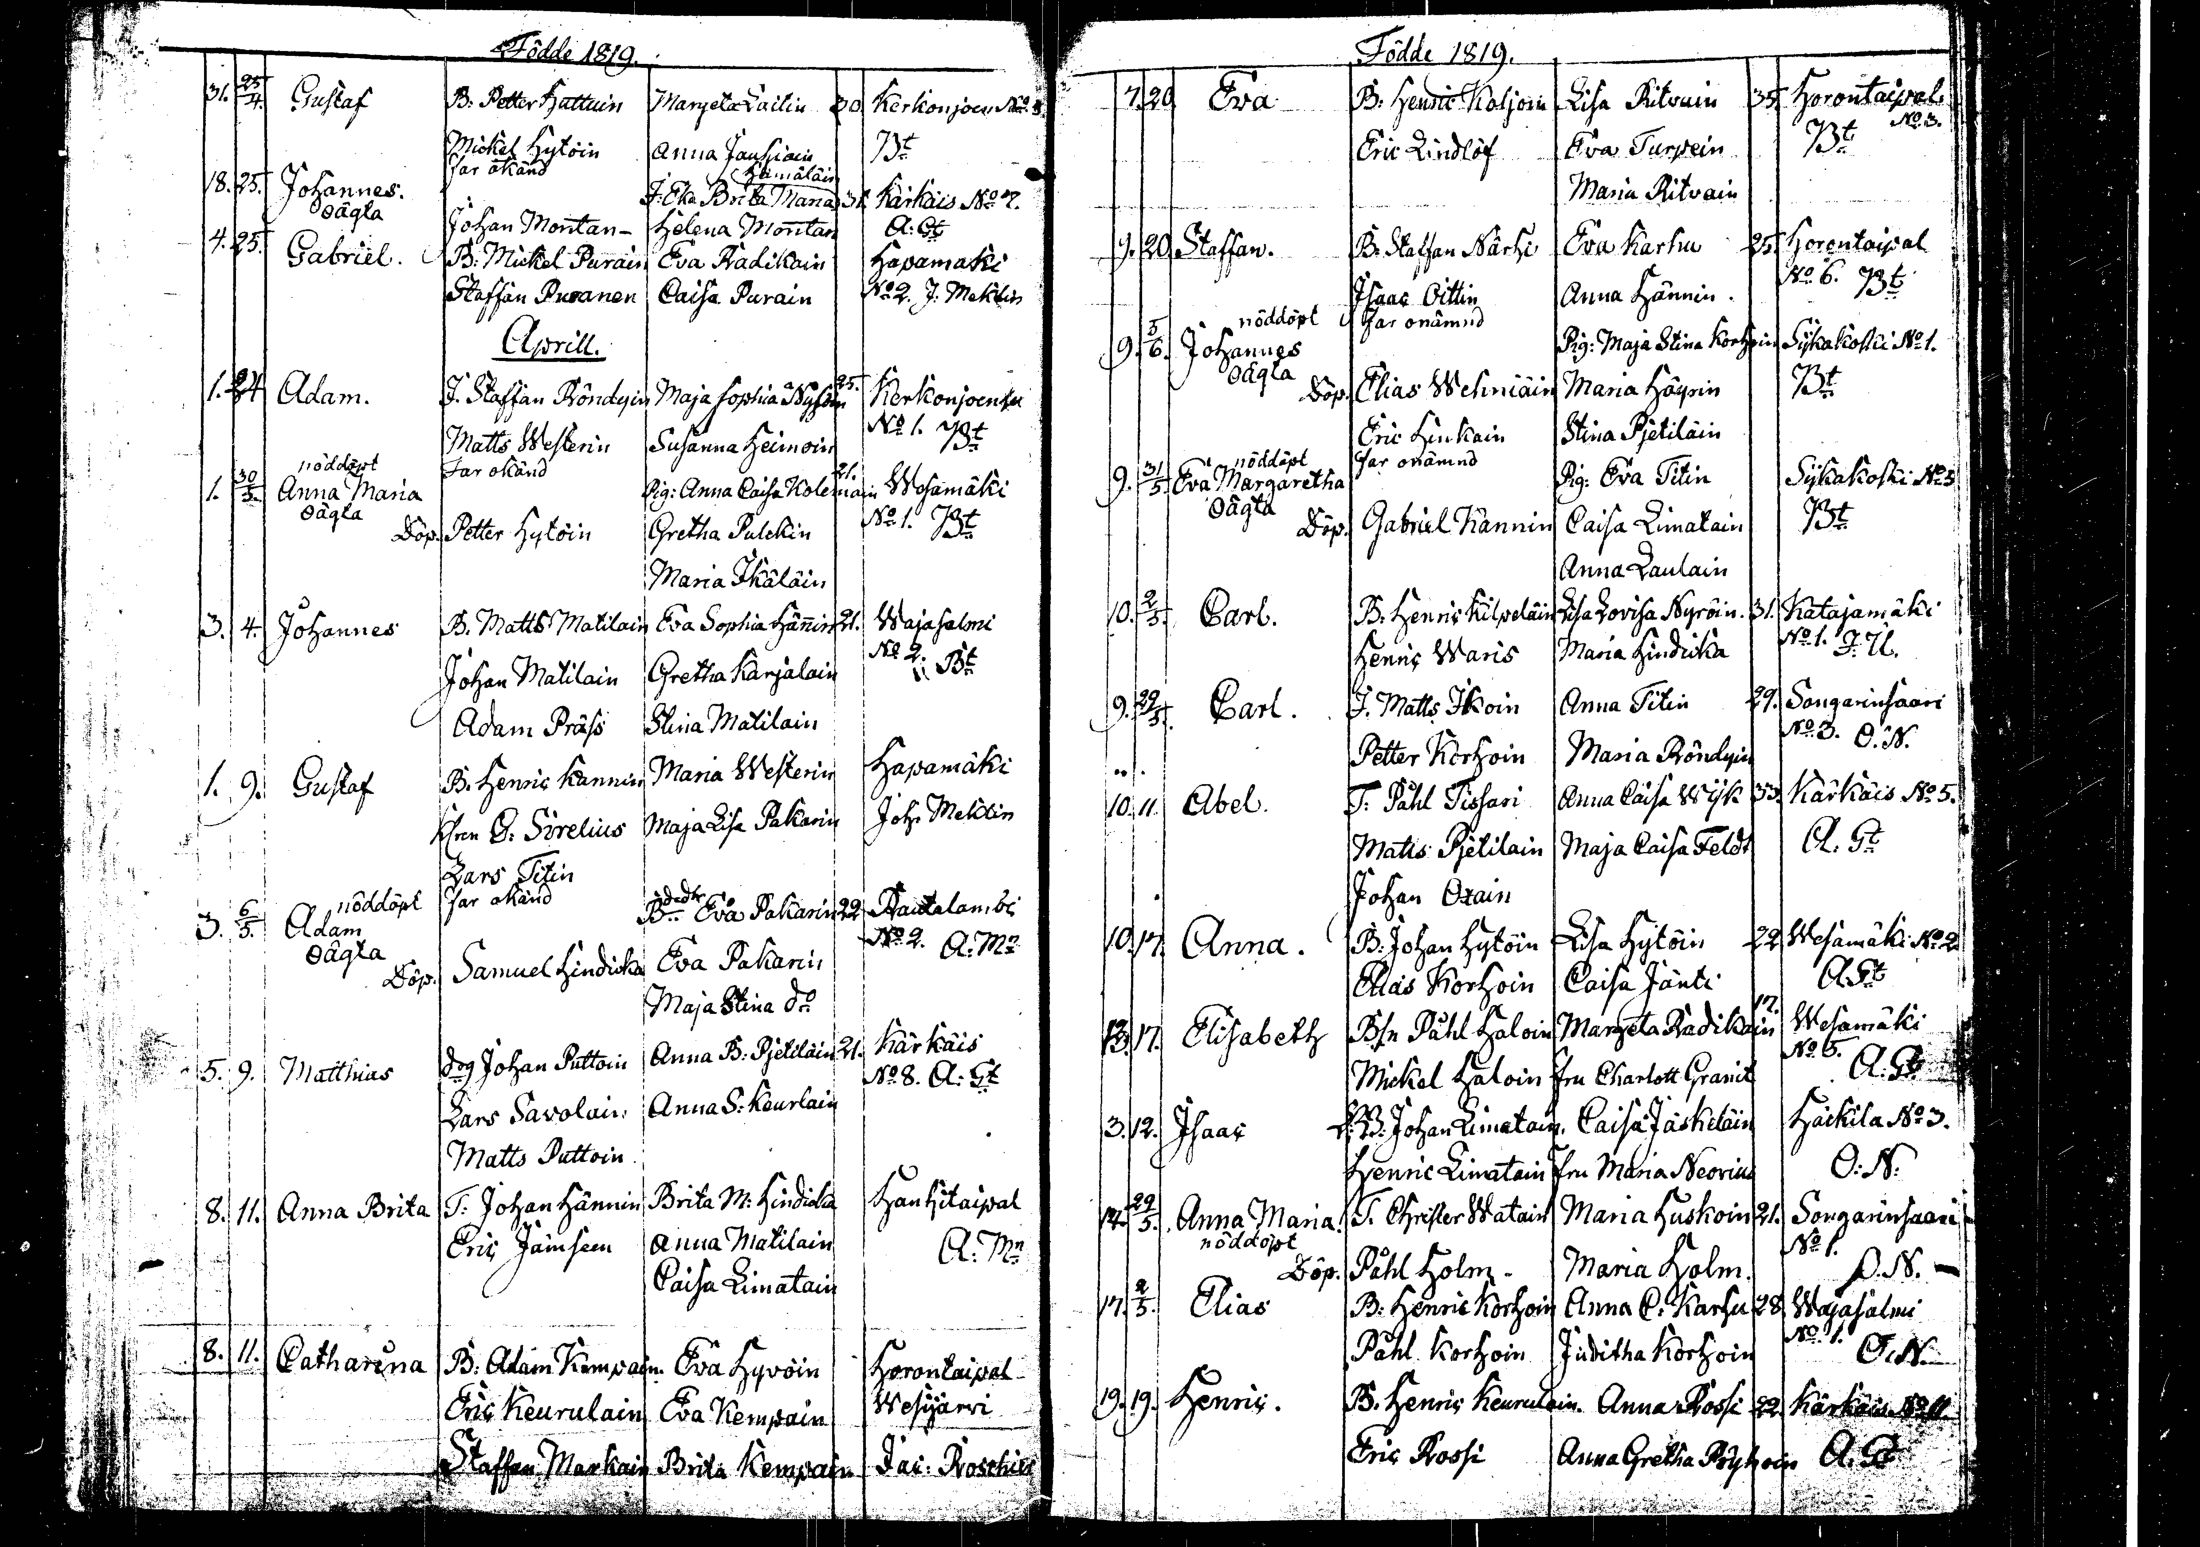 Födde 1819.
31. 25/4. Gustaf B: Petter Hattuin Margeta Laitin 30 Kerkonjoen No 3.
Mickel Hytöin Anna Jauhiain Bt
18. 25. Johannes. far okänd Hämäläin
oägta J: Eka Brita Maria 31. Kärkäis No 7.
Johan Montan Helena Montan A: Gt
4. 25. Gabriel. B: Mickel Purain Eva Radikain Hapamäki
Staffan Puranen Caisa Purain No 2. J. Meklin
Aprill.
1. 24 Adam. J. Staffan Röndyin Maja Sophia Nysöin 25. Kerkonjoensu
Matts Westerin Susanna Heimoin No 1. Bt
1. 30/5. nöddöpt far okänd 21.
Anna Maria Pig: Anna Caisa Kolemain Wesamäki
oägta Döp. Petter Hytöin Gretha Pulckin No 1. Bt
Maria Ikäläin
3. 4. Johannes B. Matts Matilain Eva Sophia Hänin 21. Wajasalmi
Johan Matilain Gretha Karjalain No 2. Bt
Adam Präss Stina Matilain
1. 9. Gustaf B. Henric Kannin Maria Westerin Hapamäki
G: Sirelius Maja Lisa Pakarin Joh. Meklin
Lars Titin
3. 6/5. nöddöpt far okänd
Adam Eva Pakarin 22 Rautalambi
oägta Döp. Samuel Hindicka Eva Pakarin No 2. A: Mn
Maja Stina do
5. 9. Matthias Johan Puttoin Anna B: Pjetiläin 21. Kärkäis
Lars Savolain Anna S: Keurlain No 8. A: Gt
Matts Puttoin
8. 11. Anna Brita T: Johan Hännin Brita M: Hindicka Hanhitaipal
Eric Jämseen Anna Matilain A: Mn
Caisa Limatain
8. 11. Catharina B: Adam Kempain Eva Hyvöin Horontaipal
Eric Keurulain Eva Kempain Wesijärvi
Staffan Markain Brita Kempain Jac: Roschier
Födde 1819.
7. 20 Eva B: Henric Koljoin Lisa Ritvain 35. Horontaipal
No 3.
Eric Lindlöf Eva Turpein Bt
Maria Ritvain
9. 20 Staffan. B. Staffan Närhi Eva Karhu 25. Horontaipal
Isaac Oittin Anna Hännin. No 6. Bt
9. 5/6. nöddöpt far onämnd
Johannes Pig: Maja Stina Korhoin Sykäkoski No 1.
oägta Döp. Elias Wehniäin Maria Häyrin Bt
Eric Hinkain Stina Pjetiläin
9. 31/5. nöddöpt far onämnd
Eva Margaretha Pig: Eva Titin Sykäkoski No 5
oägta Döp. Gabriel Kannin Caisa Limatain Bt
Anna Laulain
10. 2/5. Carl. B. Henric Kilpeläin Lisa Lovisa Nyröin. 31. Katajamäki
Henric Waris Maria Hindicka No 1. J: U.
9. 29/5. Carl. J. Matts Ikoin Anna Titin 29. Songarinsaari
Petter Korhoin Maria Röndyin No 3. O. N.
10. 11. Abel. T. Påhl Tissari Anna Caisa Wijk 33. Kärkäis No 5.
Matts Pjetilain Maja Caisa Feldt A. Gt
Johan Ozain
10. 17. Anna. B: Johan Hytöin Lisa Hytöin 22 Wesamäki No 2
Elias Korhoin Caisa Jänti A Gt
13. 17. Elisabeth Bsn Påhl Haloin Margeta Radikain 17. Wesamäki
Mickel Haloin fru Charlott Granit No 5. A: Gt
3. 12. Isaac Johan Limatain. Caisa Jäskeläin Häkilä No 3.
Henric Limatain fru Maria Neovius O: N:
14. 29/5. Anna Maria. T. Christer Watain Maria Huskoin 21. Songarinsaari
nöddöpt Döp. Påhl Holm. Maria Holm. No 1. O. N.
17. 2/5. Elias B: Henric Korhoin Anna C: Karhu 28 Wajasalmi
Påhl Korhoin Juditha Korhoin No 1. O. N.
19. 19. Henric. B. Henric Keurulain. Anna Rossi 22. Kärkäis No 11
Eric Rossi Anna Gretha Ryhoin A. Gt